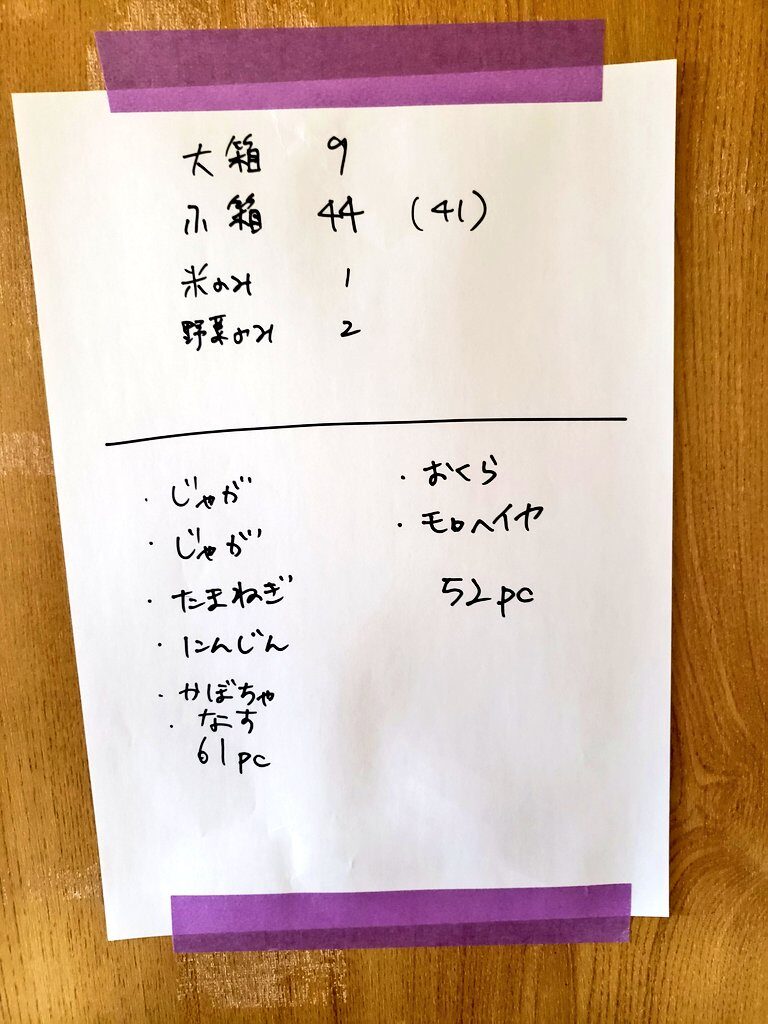 大箱 9
小箱 44 (41)
米のみ 1
野菜のみ 2
・じゃが
・じゃが
・たまねぎ
・にんじん
・かぼちゃ
・なす
61pc
・おくら
・モロヘイヤ
52pc